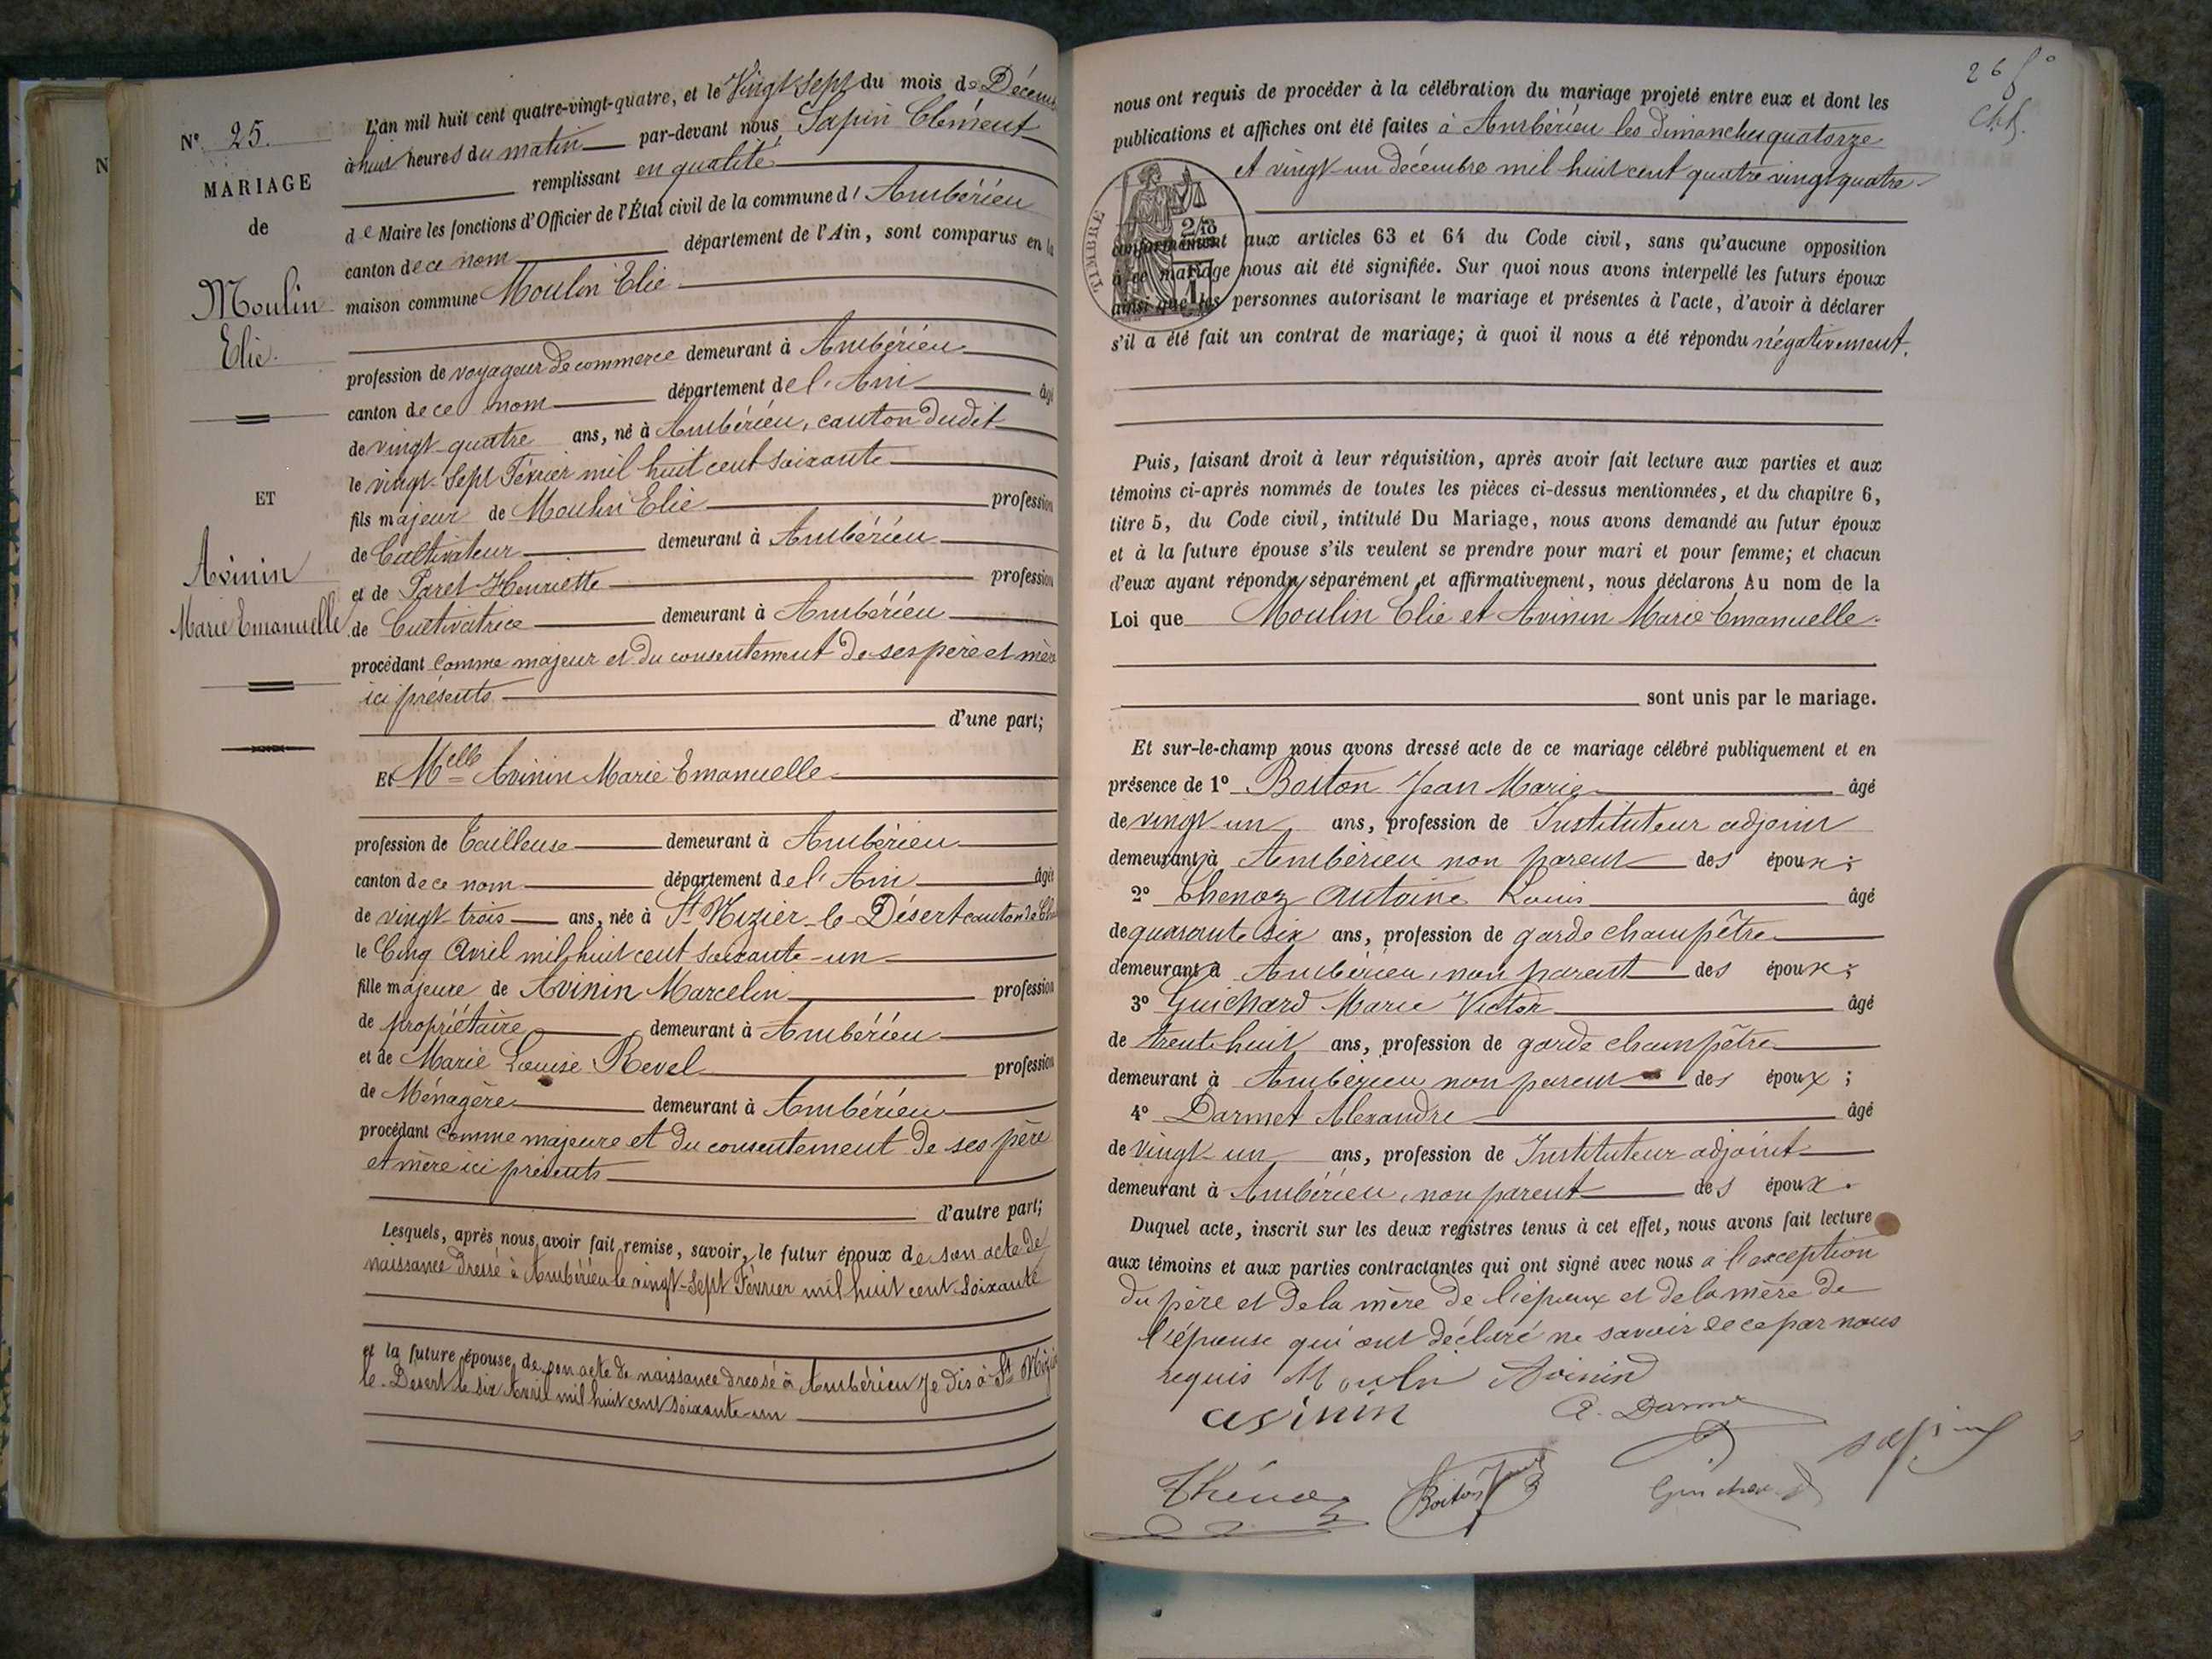 N° 25.
MARIAGE
de
Moulin
Elie.
ET
Avinin
Marie Emanuelle
L'an mil huit cent quatre-vingt-quatre, et le Vingt sept du mois de Décem
à huit heures du matin par-devant nous Sapin Clément
remplissant en qualité
de Maire les fonctions d'Officier de l'État civil de la commune d' Ambérieu
canton de ce nom département de l'Ain, sont comparus en la
maison commune Moulin Elie
profession de voyageur de commerce demeurant à Ambérieu
canton de ce nom département de l'Ain âgé
de vingt-quatre ans, né à Ambérieu, canton dudit
le vingt-sept Février mil huit cent soixante
fils majeur de Moulin Elie profession
de Cultivateur demeurant à Ambérieu
et de Paret Henriette profession
de Cultivatrice demeurant à Ambérieu
procédant comme majeur et du consentement de ses père et mère
ici présents
d'une part;
Et Melle Avinin Marie Emanuelle
profession de Tailleuse demeurant à Ambérieu
canton de ce nom département de l'Ain âgée
de vingt trois ans, née à St Nizier-le-Désert canton de Cha
le Cinq Avril mil huit cent soixante-un
fille majeure de Avinin Marcelin profession
de propriétaire demeurant à Ambérieu
et de Marie Louise Revel profession
de Ménagère demeurant à Ambérieu
procédant comme majeure et du consentement de ses père
et mère ici présents
d'autre part;
Lesquels, après nous avoir fait remise, savoir, le futur époux de son acte de
naissance dressé à Ambérieu le vingt-sept Février mil huit cent soixante
et la future épouse de son acte de naissance dressé à Ambérieu je dis à St Nizier
le-Désert le six Avril mil huit cent soixante-un
26 f°
nous ont requis de procéder à la célébration du mariage projeté entre eux et dont les
publications et affiches ont été faites à Ambérieu les dimanches quatorze
et vingt-un décembre mil huit cent quatre vingt quatre
TIMBRE
conformément aux articles 63 et 64 du Code civil, sans qu'aucune opposition
à ce mariage nous ait été signifiée. Sur quoi nous avons interpellé les futurs époux
ainsi que les personnes autorisant le mariage et présentes à l'acte, d'avoir à déclarer
s'il a été fait un contrat de mariage; à quoi il nous a été répondu négativement.
Puis, faisant droit à leur réquisition, après avoir fait lecture aux parties et aux
témoins ci-après nommés de toutes les pièces ci-dessus mentionnées, et du chapitre 6,
titre 5, du Code civil, intitulé Du Mariage, nous avons demandé au futur époux
et à la future épouse s'ils veulent se prendre pour mari et pour femme; et chacun
d'eux ayant répondu séparément et affirmativement, nous déclarons Au nom de la
Loi que Moulin Elie et Avinin Marie Emanuelle
sont unis par le mariage.
Et sur-le-champ nous avons dressé acte de ce mariage célébré publiquement et en
présence de 1° Boiton Jean Marie âgé
de vingt-un ans, profession de Instituteur adjoint
demeurant à Ambérieu non parent des époux;
2° Thenoz Antoine Louis âgé
de quarante six ans, profession de garde champêtre
demeurant à Ambérieu, non parent des époux;
3° Guichard Marie Victor âgé
de trente huit ans, profession de garde champêtre
demeurant à Ambérieu non parent des époux;
4° Darmet Alexandre âgé
de vingt-un ans, profession de Instituteur adjoint
demeurant à Ambérieu, non parent des époux.
Duquel acte, inscrit sur les deux registres tenus à cet effet, nous avons fait lecture
aux témoins et aux parties contractantes qui ont signé avec nous à l'exception
du père et de la mère de l'époux et de la mère de
l'épouse qui ont déclaré ne savoir de ce par nous
requis Moulin Avinin
avinin A. Darmet
sapin
Thénoz Boiton Guichard